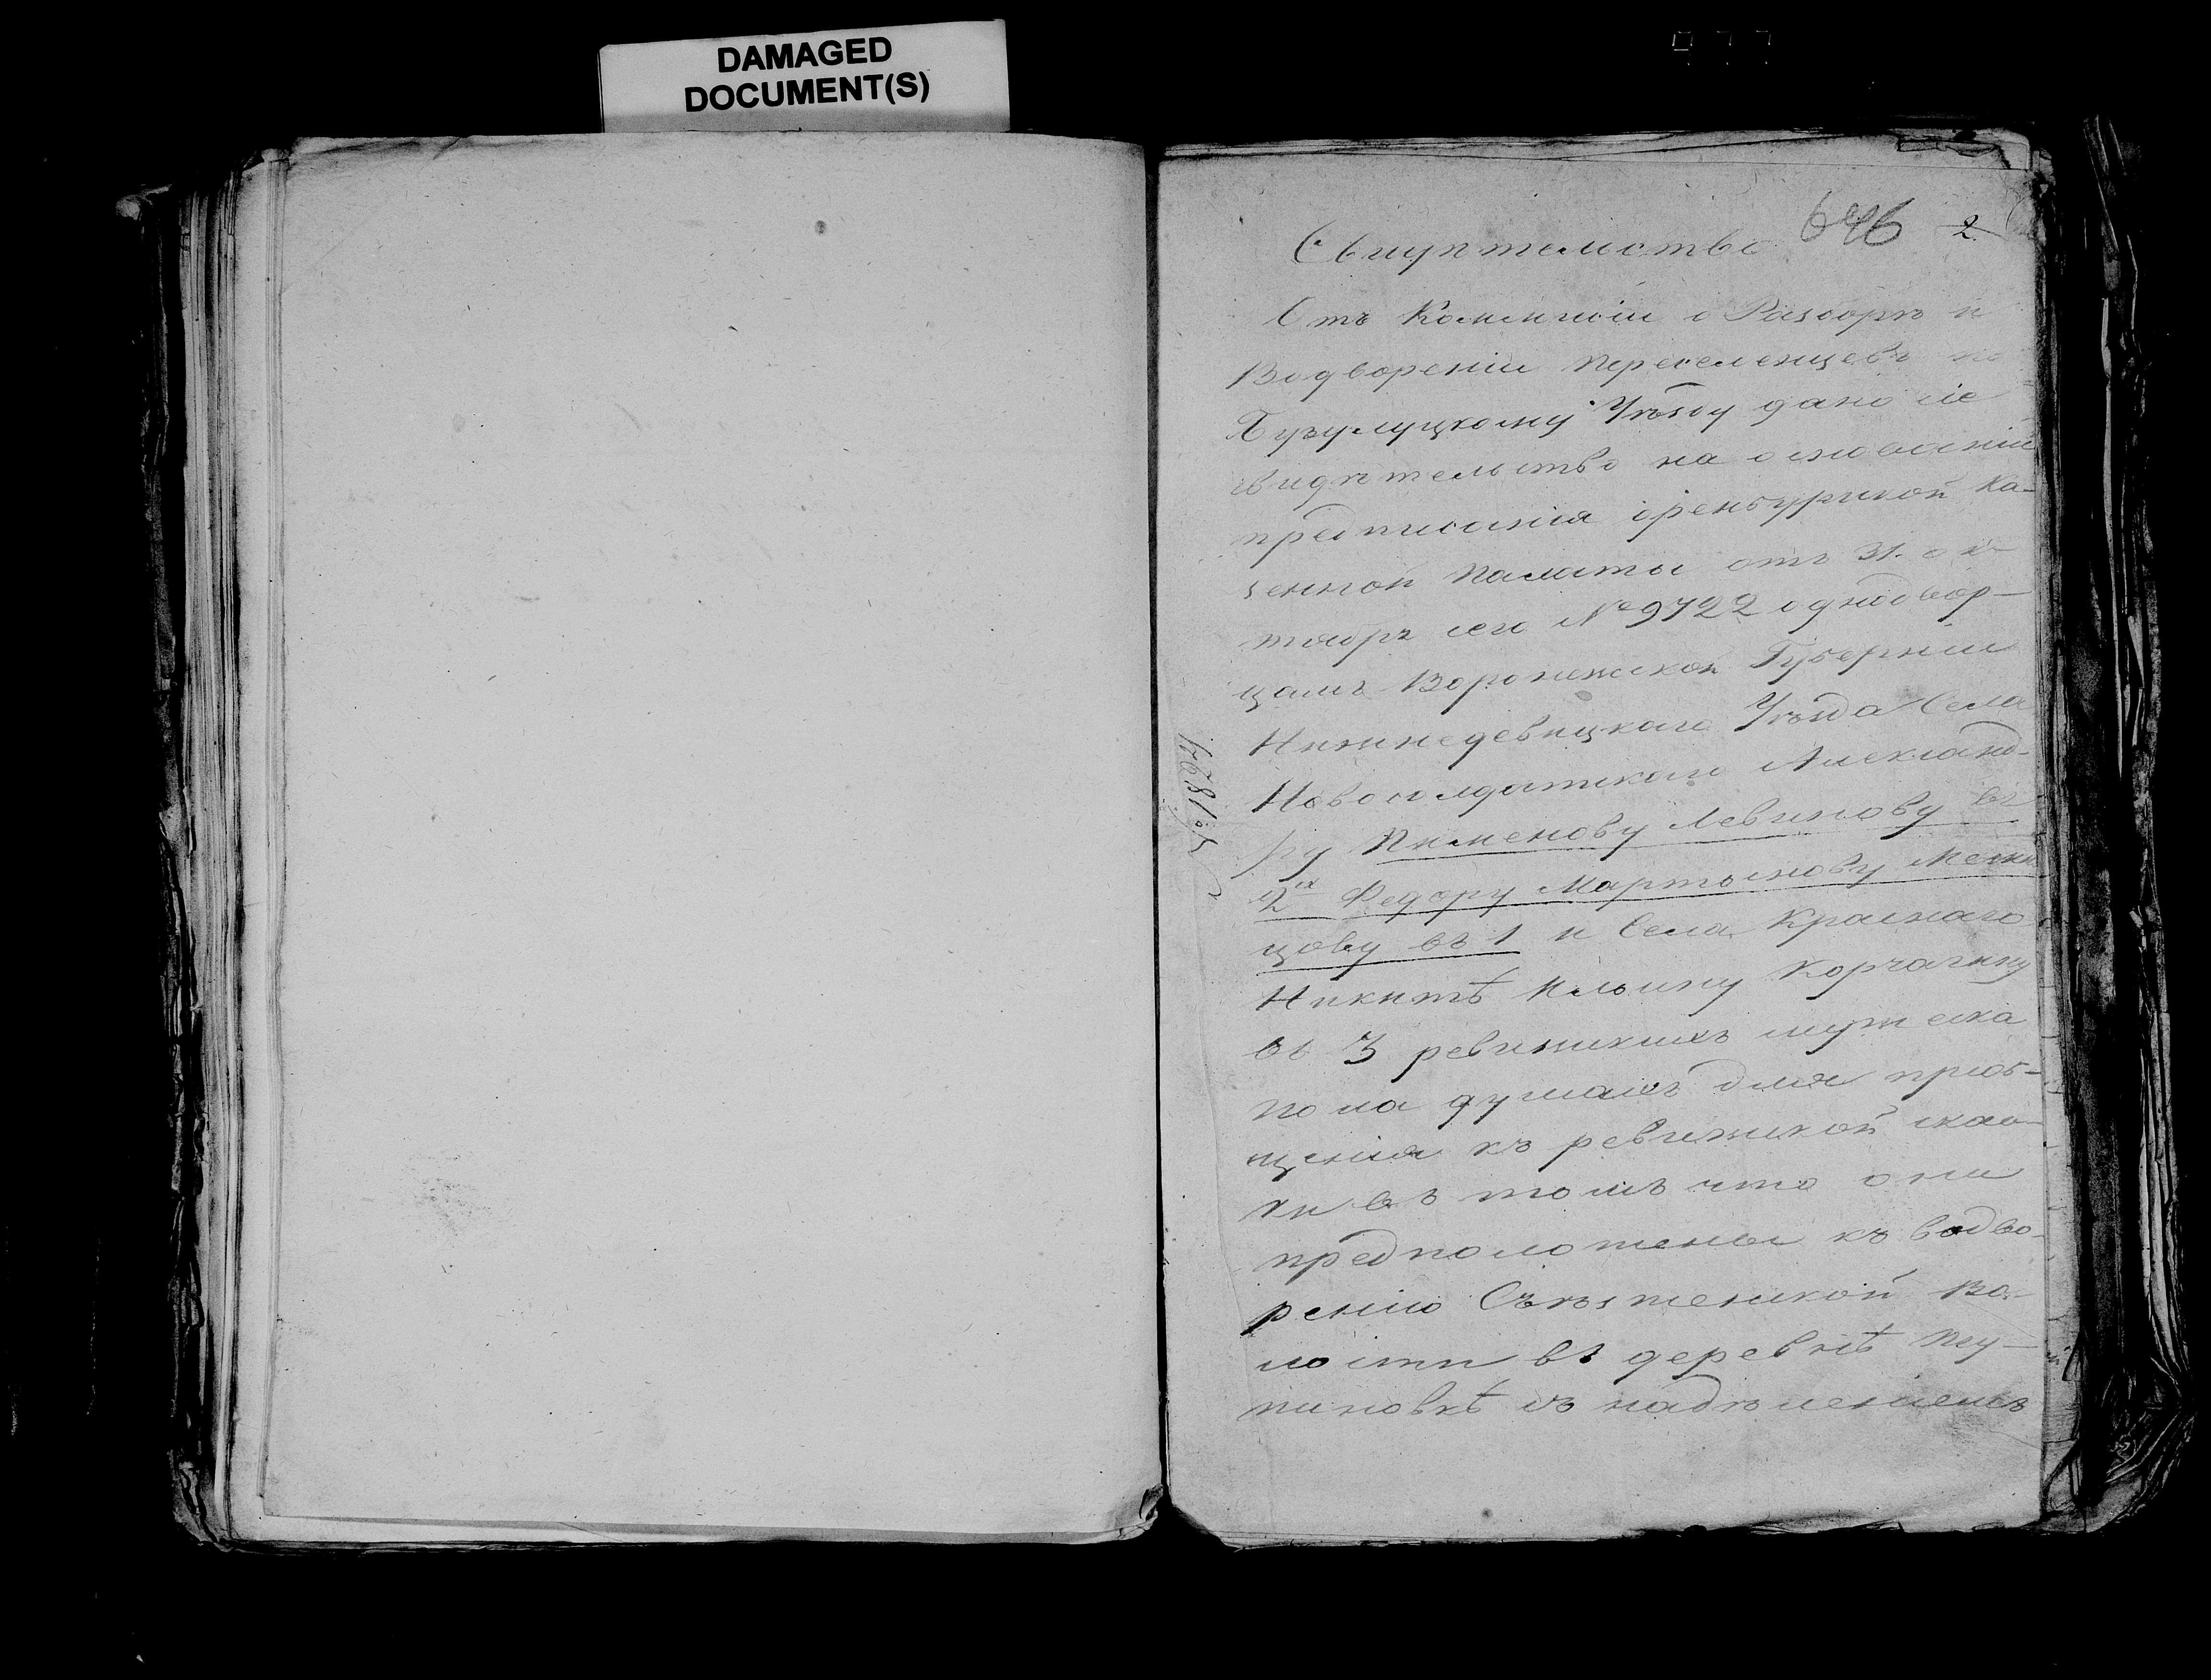 DAMAGED
DOCUMENT(S)
646 2
Свидѣтельство
Отъ Коммисіи о Разборѣ и
Водвореніи переселенцевъ по
Бузулуцкому Уѣзду дано сіе
свидѣтельство на основаніи
предписанія Оренбургской Ка-
зенной Палаты отъ 31. ок-
тября сего № 9722 однодвор-
цамъ Воронежской Губерніи
Нижнедевицкаго Уѣзда Села
Новосолдатскаго Александ-
ру Пименову Левшову въ
2х Федору Мартынову
цову въ 1 и Села Краснаго
Никитѣ Ильину Корчагину
въ 3 ревижскихъ мужеска
пола душахъ для пріоб-
щенія къ ревижской сказ-
ки въ томъ что они
предположены къ водво-
ренію Съѣзженской Во-
лости въ деревнѣ
съ надѣленіемъ